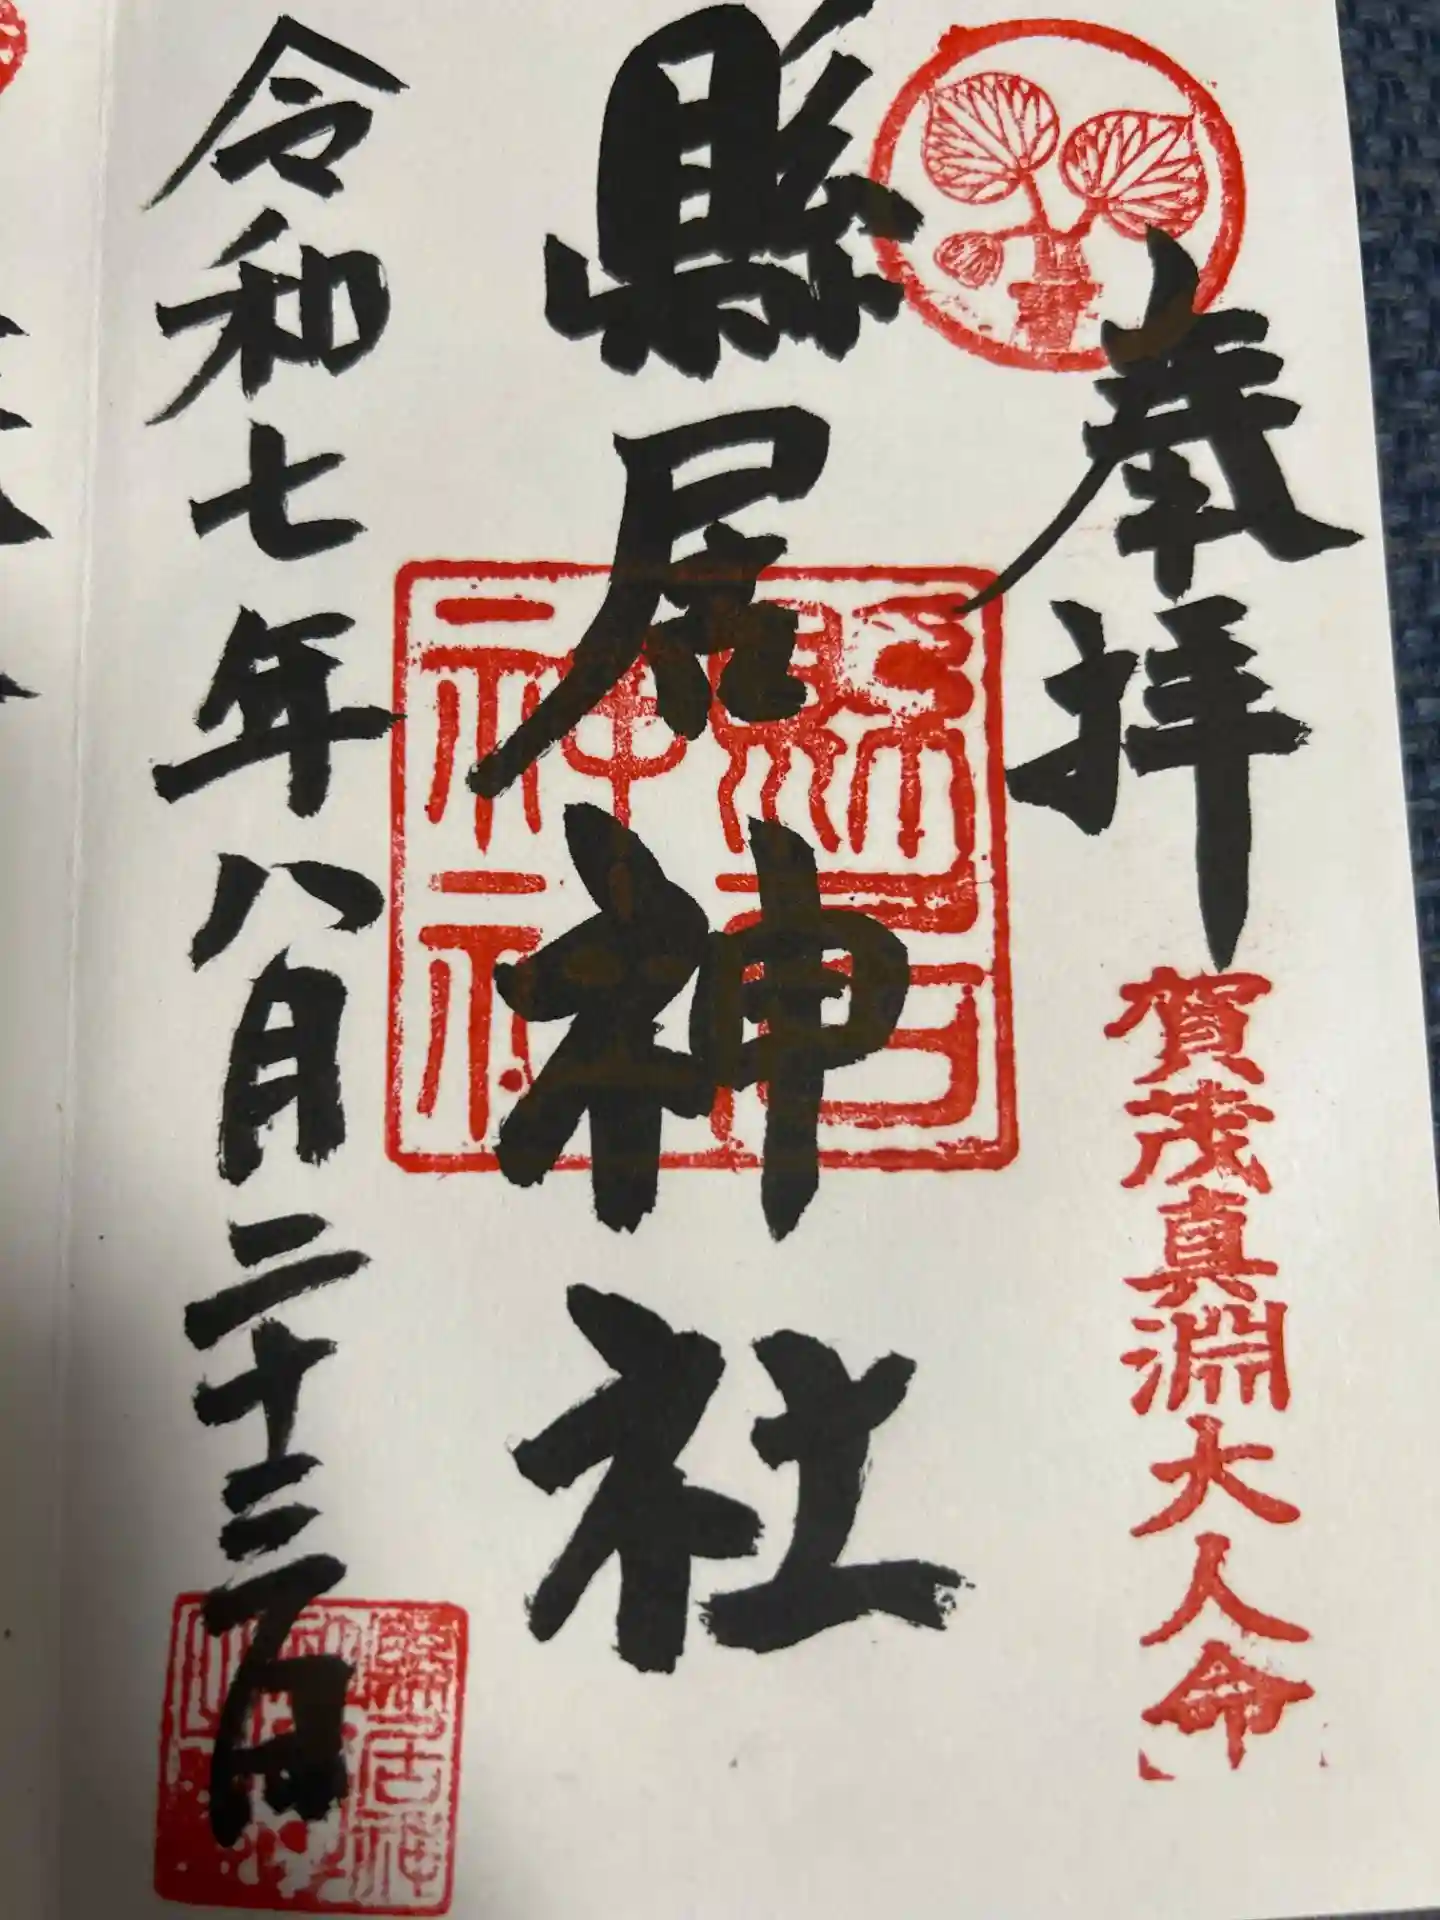 奉拝
賀茂真淵大人命
縣居神社
縣居神社
令和七年八月二十三日